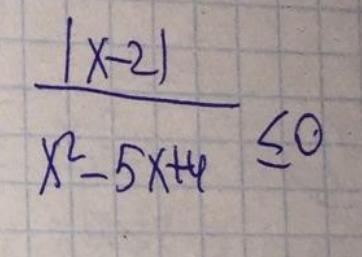 |x-2|
x²-5x+4 ≤0